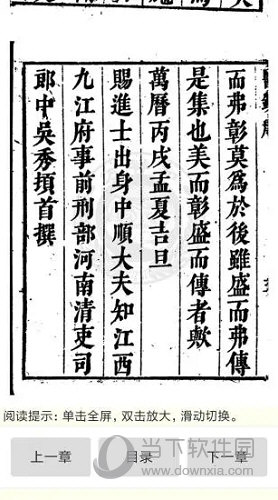 而弗彰莫為於後雖盛而弗傳
是集也美而彰盛而傳者歟
萬曆丙戌孟夏吉旦
賜進士出身中順大夫知江西
九江府事前刑部河南清吏司
郎中吳秀頓首撰
阅读提示：单击全屏，双击放大，滑动切换。
上一章
目录
下一章
当下软件园
www.downxia.com